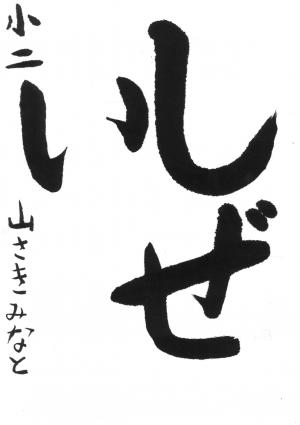 しぜ
い
小二 山さきみなと